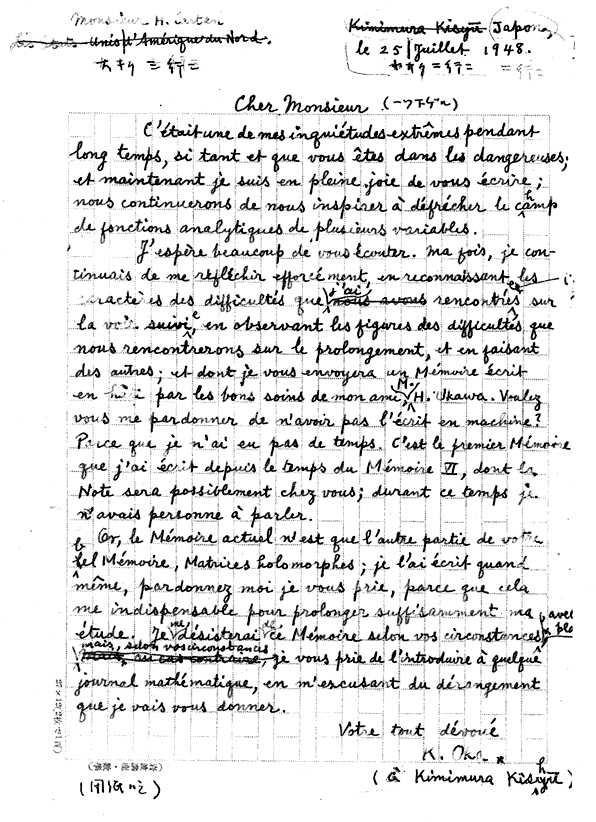 Monsieur H. Cartan
Unis d'Amérique du Nord.
Kimimura Kisyū Japon,
le 25 Juillet 1948.
Cher Monsieur
C'était une de mes inquiétudes extrêmes pendant
long temps, si tant et que vous êtes dans les dangereuses;
et maintenant je suis en pleine joie de vous écrire;
nous continuerons de nous inspirer à défrécher le champ
de fonctions analytiques de plusieurs variables.
J'espère beaucoup de vous écouter. Ma fois, je con-
tinuais de me réfléchir efforcément, en reconnaissant les
caractères des difficultés que j'ai nous avons rencontrées sur
la voie suivie, en observant les figures des difficultés que
nous rencontrerons sur le prolongement, et en faisant
des autres; et dont je vous envoyera un Mémoire écrit
en par les bons soins de mon ami M. H. Ukawa. Voulez
vous me pardonner de n'avoir pas l'écrit en machine?
Parce que je n'ai eu pas de temps. C'est le premier Mémoire
que j'ai écrit depuis le temps du Mémoire VI, dont la
Note sera possiblement chez vous; durant ce temps je
n'avais personne à parler.
Or, le Mémoire actuel n'est que l'autre partie de votre
bel Mémoire, Matrices holomorphes; je l'ai écrit quand
même, pardonnez moi je vous prie, parce que cela
me indispensable pour prolonger suffisamment ma
étude. Je me désisterai de ce Mémoire selon vos circonstances, avec
mais, selon vos circonstances
je vous prie de l'introduire à quelque
journal mathématique, en m'excusant du dérangement
que je vais vous donner.
Votre tout dévoué
K. Oka.
(à Kimimura Kisyū)